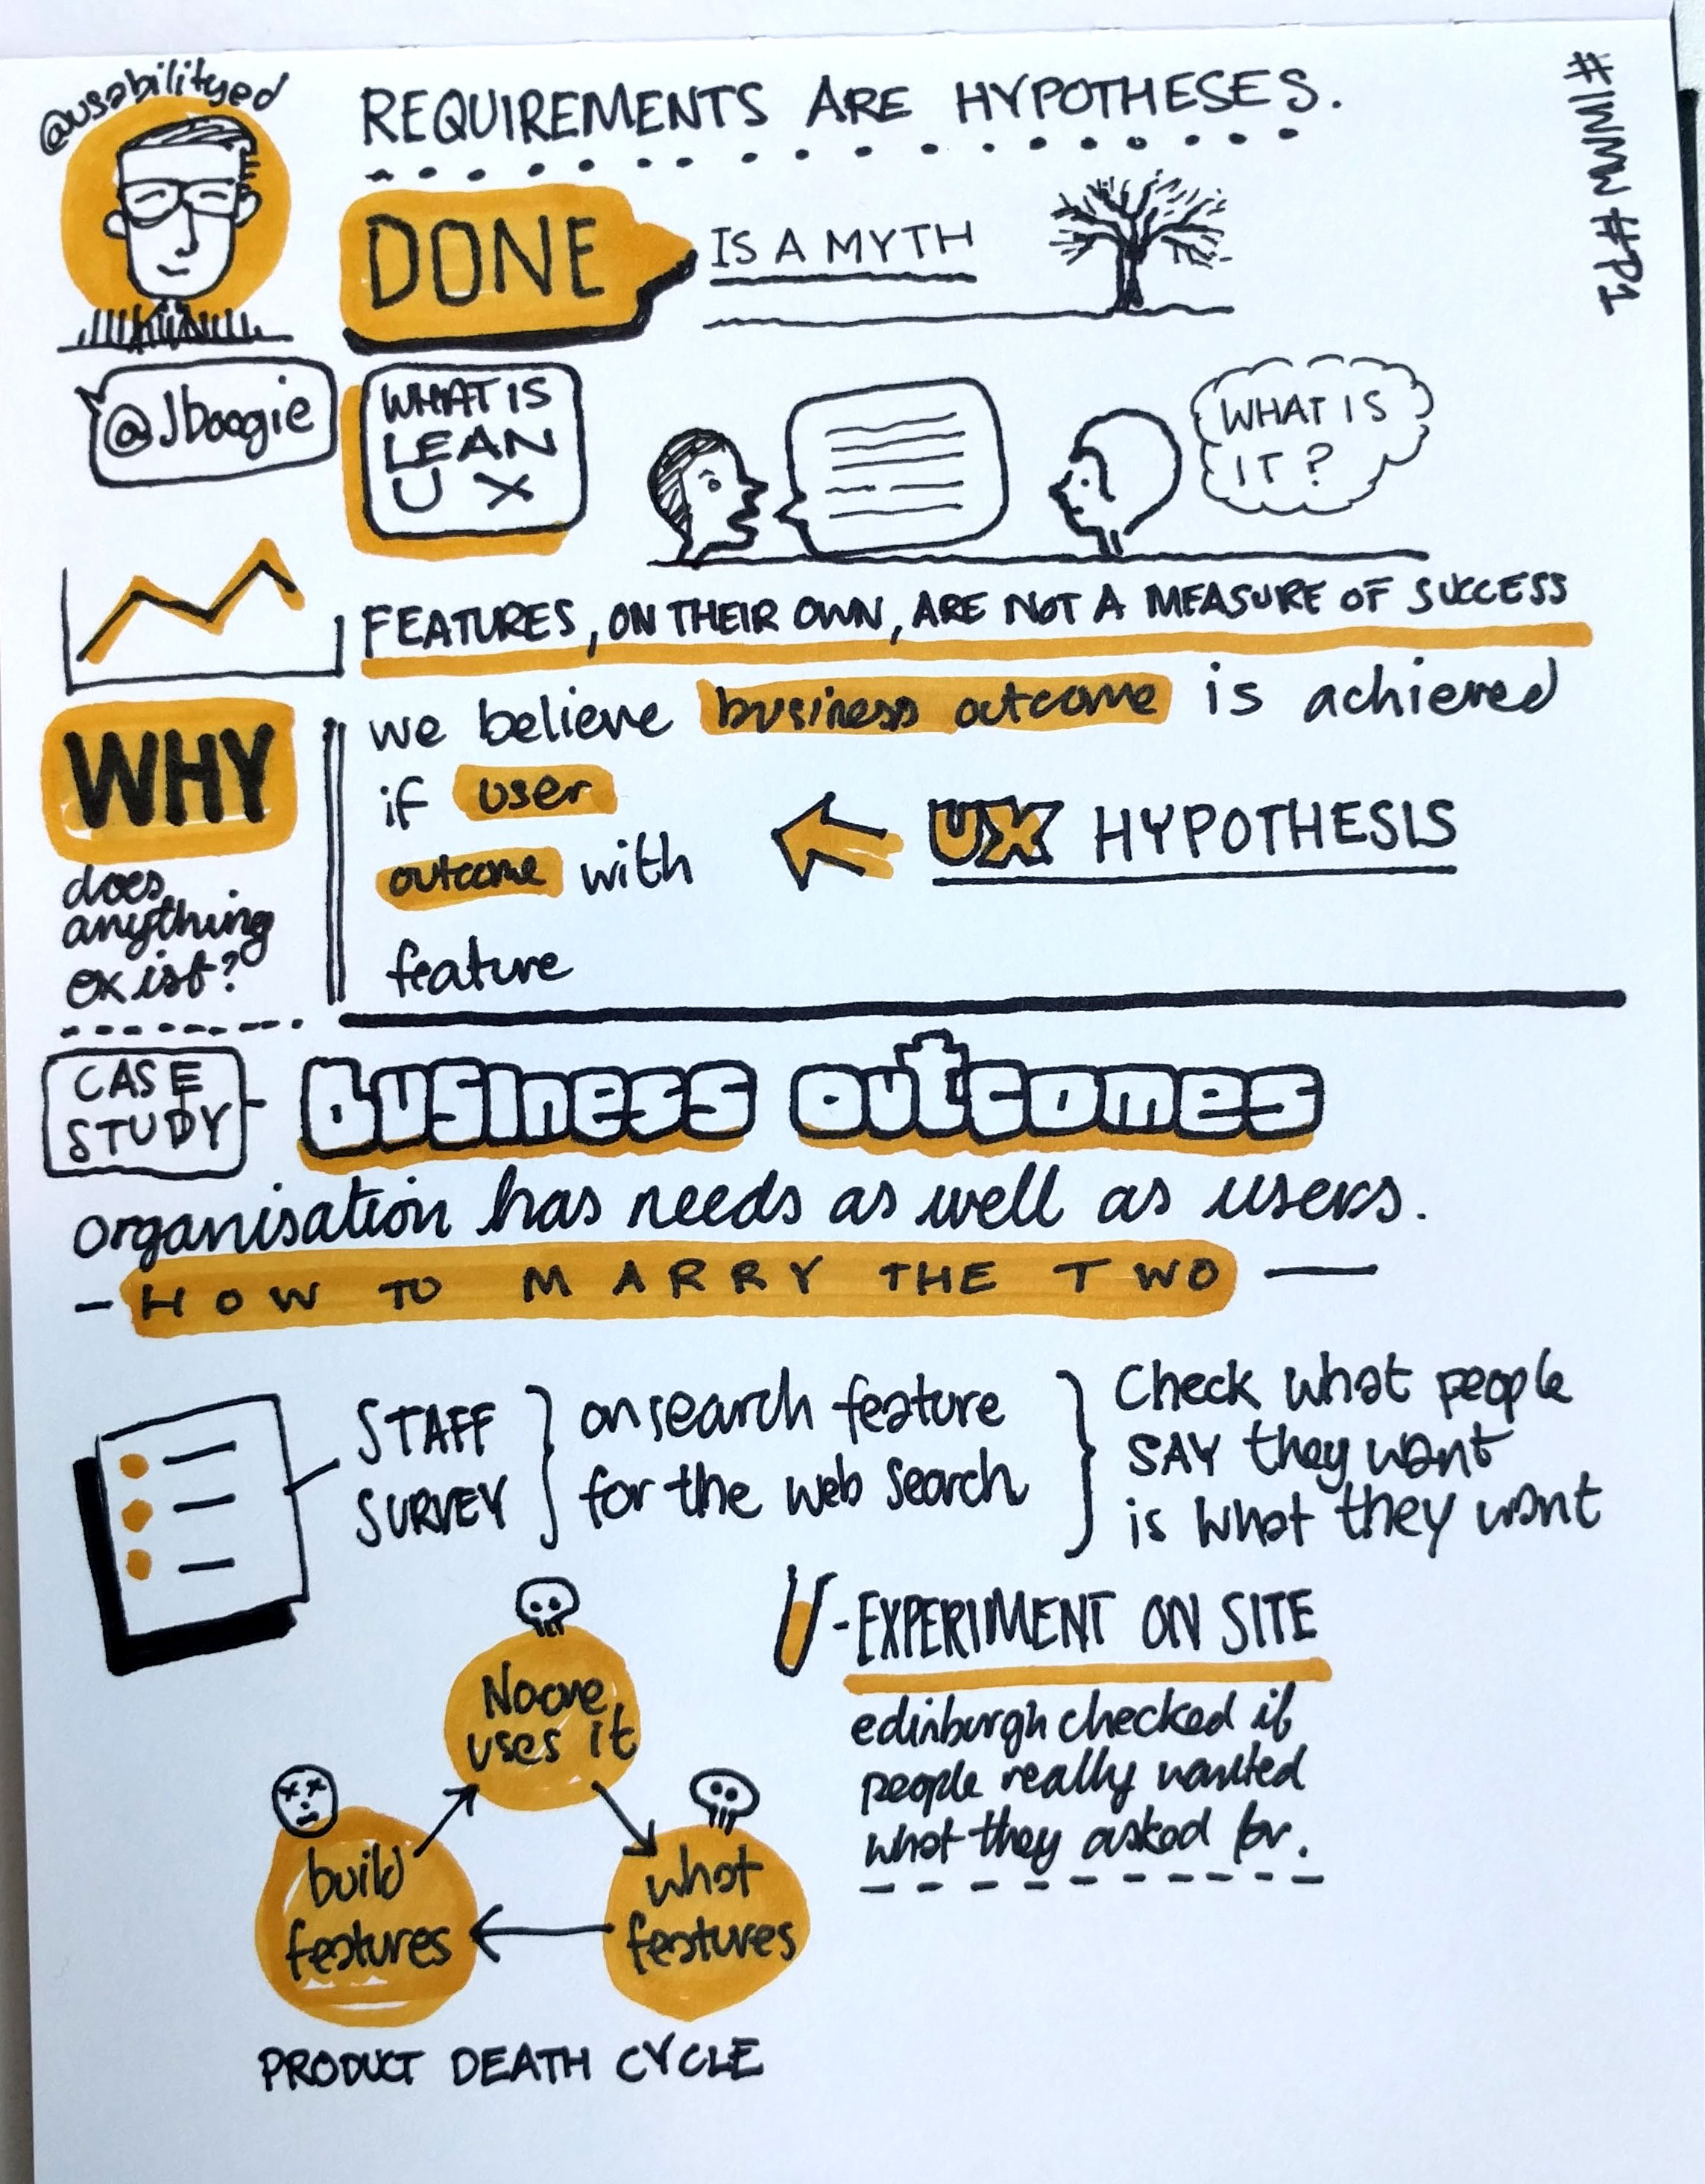 @usabilityed
REQUIREMENTS ARE HYPOTHESES.
#IWMW #P1
DONE IS A MYTH
@Jboogie
WHAT IS
LEAN
UX
WHAT IS
IT?
FEATURES, ON THEIR OWN, ARE NOT A MEASURE OF SUCCESS
WHY
does
anything
exist?
we believe business outcome is achieved
if user
outcome with
feature
UX HYPOTHESIS
CASE
STUDY
Business outcomes
organisation has needs as well as users.
- HOW TO MARRY THE TWO —
STAFF
SURVEY
on search feature
for the web search
Check what people
SAY they want
is what they want
- EXPERIMENT ON SITE
edinburgh checked if
people really wanted
what they asked for.
Noone
uses it
what
features
build
features
PRODUCT DEATH CYCLE